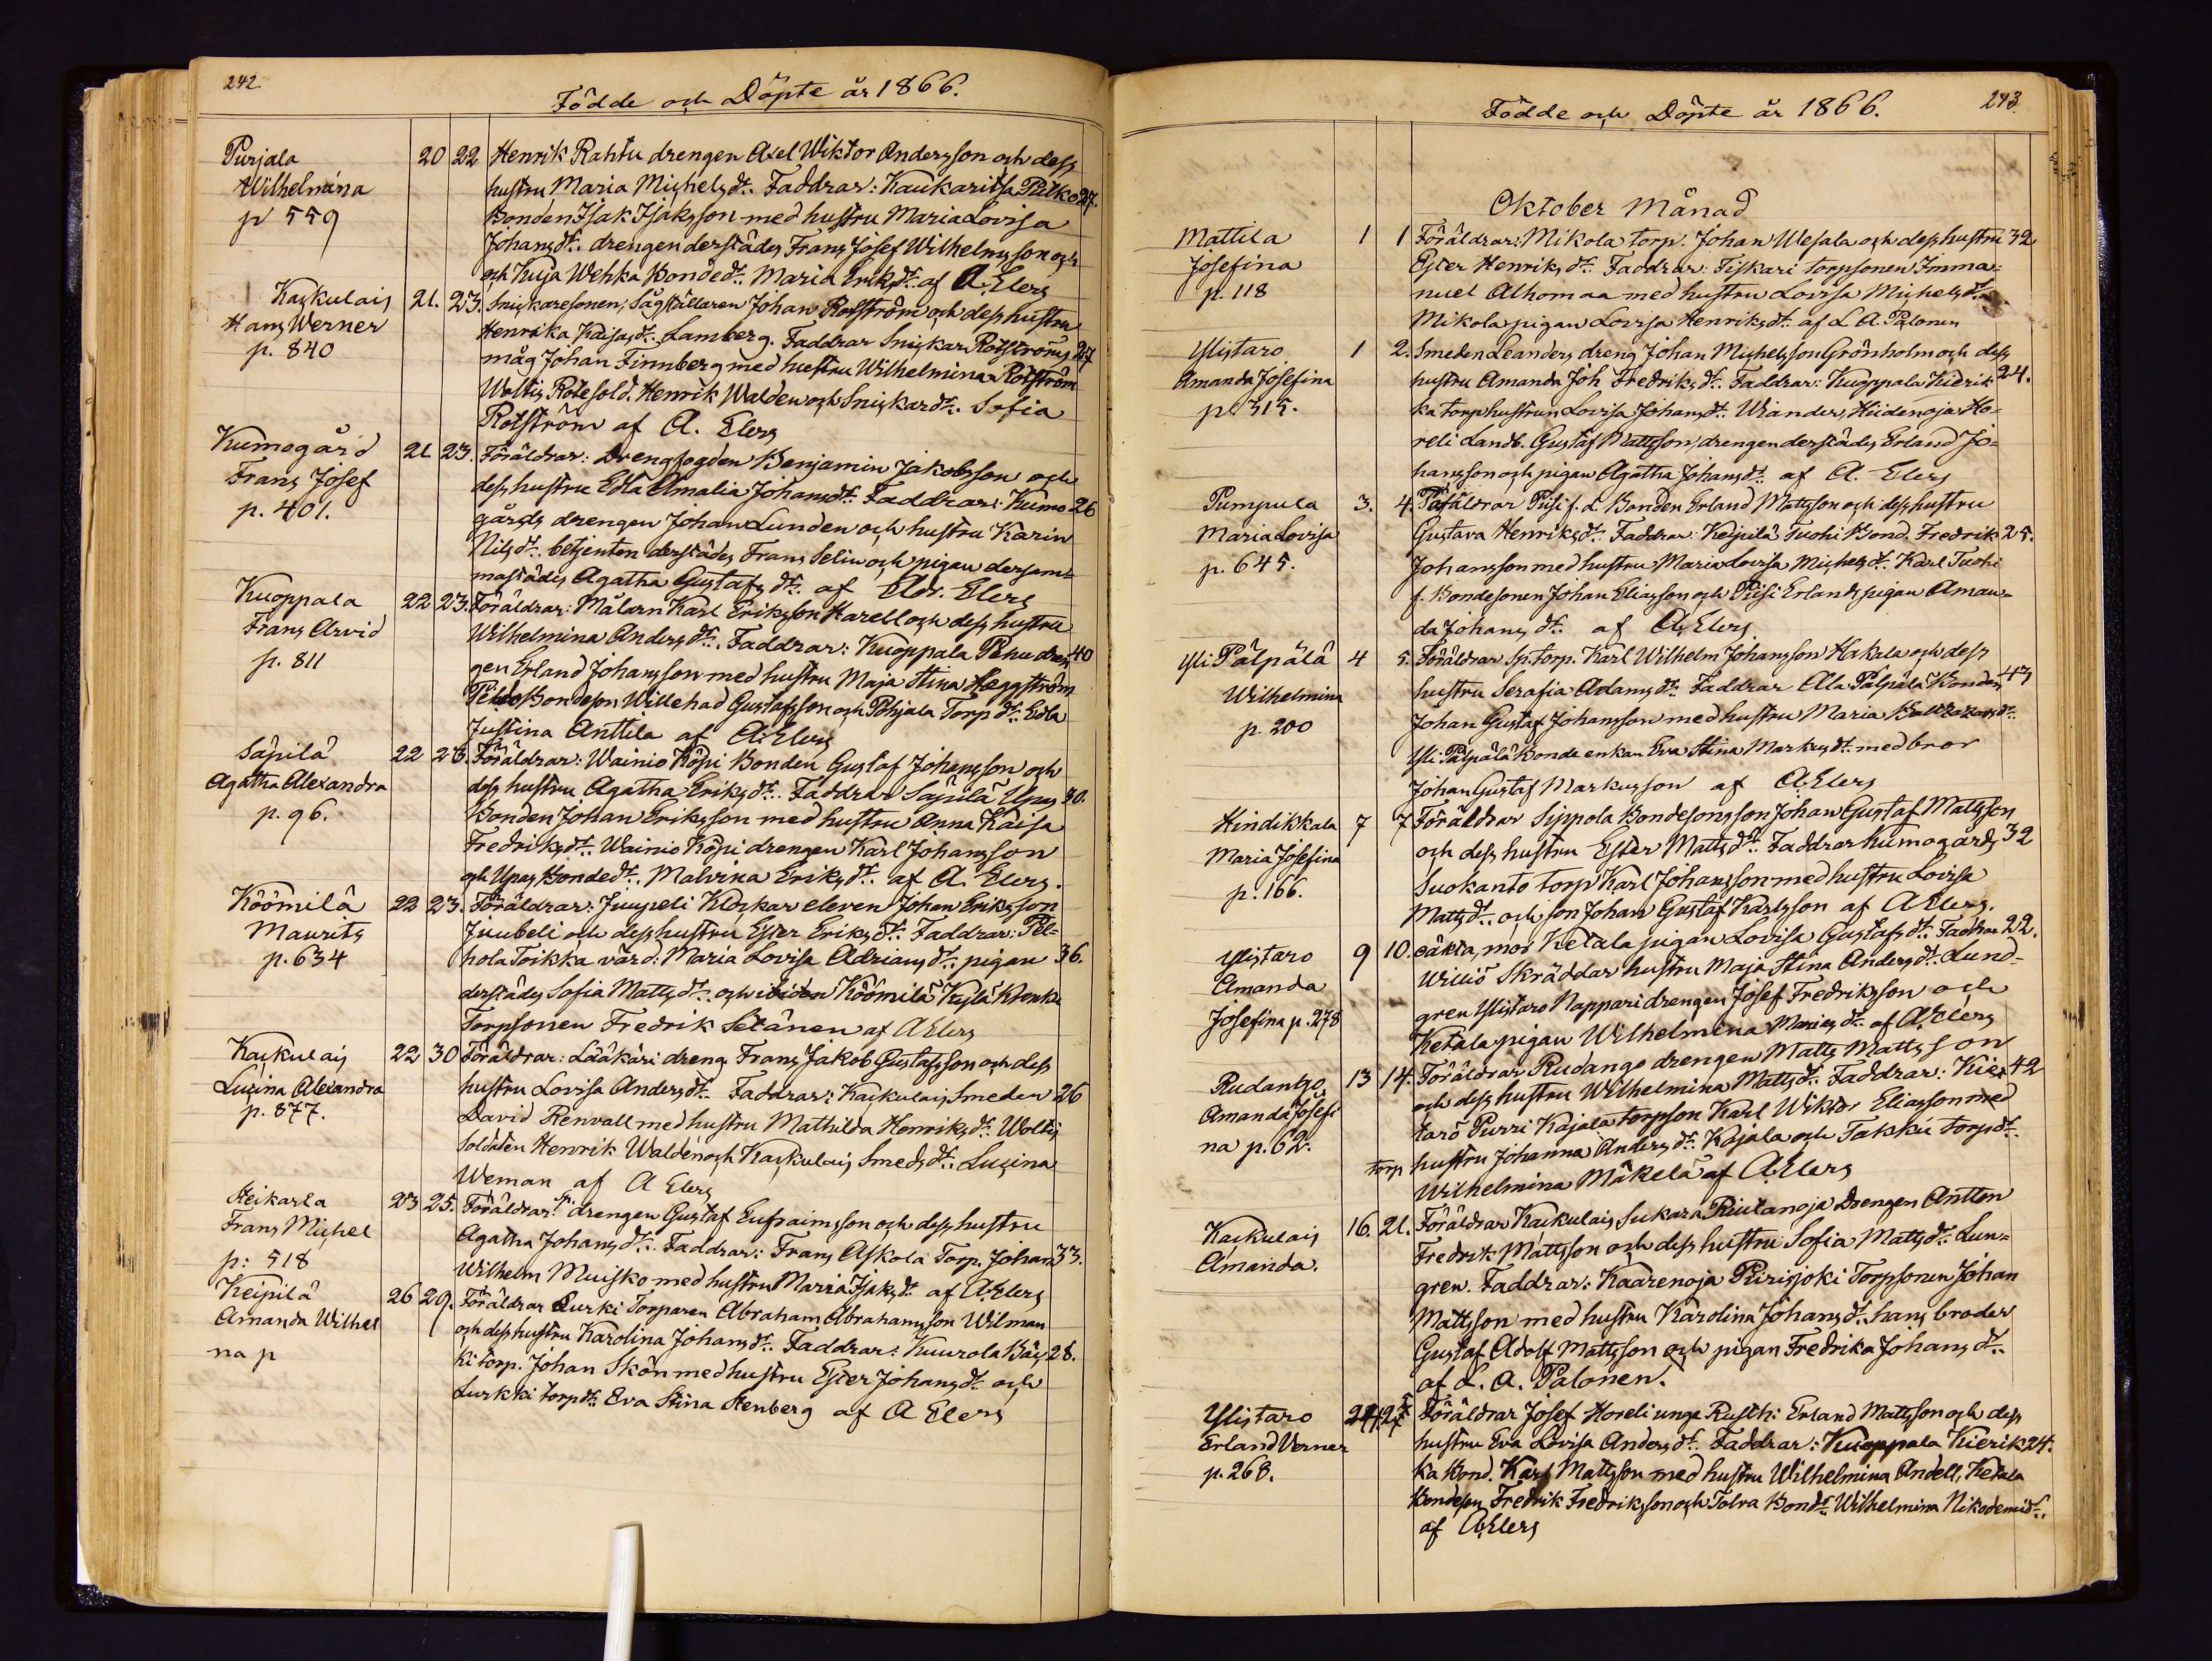 242
Födde och Döpte år 1866.
Purjala 20 22 Henrik Rahtu drengen Axel Wiktor Andersson och dess
Wilhelmina hustru Maria Michelsdr. Faddrar: Kaukaritsa Pulko 27.
p 559 Bonden Isak Isaksson med hustru Maria Lovisa
Johansdr. drengen derstädes Frans Josef Wilhelmsson och
och Kuja Wehka Bondedr. Maria Eriksdr. af A Elers
Kaskulais 21. 23. Snickaresonen, Sågställaren Johan Rotström och dess hustru
Hans Werner Henrika Kaisasdr. Lamberg. Faddrar Snickar Rotströms 27
p. 840 måg Johan Finnberg med hustru Wilhelmina Rotström
Woltis Rotesold. Henrik Walden och Snickardr. Sofia
Rotström af A. Elers
Kumogård 21 23. Föräldrar: Drengfogden Benjamin Jakobsson och
Frans Josef dess hustru Edla Amalia Johansdr. Faddrar: Kumo 26
p. 401. gårds drengen Johan Lunden och hustru Karin
Nilsdr. betjenten derstädes Frans Selin och pigan dersam=
mastädes Agatha Gustafsdr. af Adr. Elers
Kuoppala 22 23. Föräldrar: Målarn Karl Eriksson Harell och dess hustru
Frans Arvid Wilhelmina Andersdr. Faddrar: Kuoppala Pehu dren 40
p. 811 gen Erland Johansson med hustru Maja Stina Heggström
Bondeson Willehad Gustafsson och Pohjala Torp dr. Edla
Justina Anttila af A. Elers
Säpilä 22 23 Föräldrar: Wainio Köpi Bonden Gustaf Johansson och
Agatha Alexandra dess hustru Agatha Eriksdr. Faddrar Säpilä Upas 30.
p. 96. Bonden Johan Eriksson med hustru Anna Kaisa
Fredriksdr. Wainio Köpi drengen Karl Johansson
och Upas Bondedr. Malvina Eriksdr. af A. Elers.
Köömilä 22 23. Föräldrar: Juupeli Klockar eleven Johan Eriksson
Maurits Juubeli och dess hustru Ester Eriksdr. Faddrar: Pel=
p. 634 hola Toikka värd: Maria Lovisa Adriansdr. pigan 36.
derstädes Sofia Mattsdr. och Köömilä Kylä Klenku
Torpsonen Fredrik Setänen af A Elers
Kaskulais 22 30 Föräldrar: Lääkäri dreng Frans Jakob Gustafsson och dess
Lucina Alexandra hustru Lovisa Andersdr. Faddrar: Kaskulais Smeden 26
p. 877. David Renvall med hustru Mathilda Henriksdr. Woltis
Soldaten Henrik Walden och Kaskulais Smedsdr. Lucina
Weman af A Elers
Keikarla 23 25. Föräldrar: drengen Gustaf Eufraimsson och dess hustru
Frans Michel Agatha Johansdr. Faddrar: Frans Askola Torp. Johan 33.
p: 518 Wilhelm Muisko med hustru Maria Isaksdr. af A Elers
Keipilä 26 29. Föräldrar Lurki Torparen Abraham Abrahamsson Wilman
Amanda Wilhel och dess hustru Karolina Johansdr. Faddrar: Kuurola Bäc 28.
na p ki torp. Johan Skön med hustru Ester Johansdr. och
Lurkki torp dr. Eva Stina Stenberg af A Elers
243
Födde och Döpte år 1866.
Oktober Månad
Mattila 1 1 Föräldrar: Mikola torp. Johan Wesala och dess hustru 32
Josefina Ester Henriksdr. Faddrar: Fiskari torpsonen Imma=
p. 118 nuel Alhomaa med hustru Lovisa Michelsdr.
Mikola pigan Lovisa Henriksdr. af L. A. Palonen
Ylistaro 1 2. Smeden Leanders dreng Johan Michelsson Grönholm och dess
Amanda Josefina hustru Amanda Joh Fredriksdr. Faddrar: Kuoppala Kierik 24.
p. 315. ka torp hustrun Lovisa Johansdr. Wiander, Hiidenoja Ho=
reli Landb. Gustaf Mattsson, drengen derstädes Erland Jo=
hansson och pigan Agatha Johansdr. af A. Elers
Pumpula 3. 4. Föräldrar Piisi f. d. Bonden Erland Mattsson och dess hustru
Maria Lovisa Gustava Henriksdr. Faddrar: Keipilä Tuohi Bond. Fredrik 25.
p. 645. Johansson med hustru Maria Lovisa Michelsdr. Karl Tuohi
f. Bondesonen Johan Eliasson och Piisi Erlands pigan Aman=
da Johansdr. af A Elers
Yli Pälpälä 4 5. Föräldrar Sp. torp. Karl Wilhelm Johansson Hakala och dess
Wilhelmina hustru Serafia Adamsdr. Faddrar Ala Pälpälä Bonden 43
p. 200 Johan Gustaf Johansson med hustru Maria Baltzarsdr.
Yli Pälpälä Bonde enkan Eva Stina Markusdr. med bror
Johan Gustaf Markusson af A Elers
Hindikkala 7 7 Föräldrar Sippola Bondesonsson Johan Gustaf Mattsson
Maria Josefina och dess hustru Ester Mattsdr. Faddrar Kumogårds 32
p. 166. Suokanto torp Karl Johansson med hustru Lovisa
Mattsdr. och son Johan Gustaf Karlsson af A Elers.
Ylistaro 9 10. oäkta, mor Ketala pigan Lovisa Gustafsdr. Faddrar 22.
Amanda Williö Skräddar hustru Maja Stina Andersdr. Lund=
Josefina p. 278 gren Ylistaro Nappari drengen Josef Fredriksson och
Ketala pigan Wilhelmina Mariasdr. af A Elers
Rudanko 13 14. Föräldrar Rudango drengen Matts Mattsson
Amanda Josefi och dess hustru Wilhelmina Mattsdr. Faddrar: Kier 42
na p. 62. tarö Purri Kajala torpson Karl Wiktor Eliasson med
torp hustru Johanna Andersdr. Kajala och Takku torp dr.
Wilhelmina Mäkelä af A Elers
Kaskulais 16. 21. Föräldrar Kaskulais Sukara Riutanoja Drengen Antton
Amanda. Fredrik Mattsson och dess hustru Sofia Mattsdr. Lun=
gren. Faddrar: Kaarenoja Piirijoki Torpsonen Johan
Mattsson med hustru Karolina Johansdr. hans broder
Gustaf Adolf Mattsson och pigan Fredrika Johansdr.
af L. A. Palonen.
Ylistaro Föräldrar Josef Horeli unge Rusth: Erland Mattsson och dess
Erland Verner hustru Eva Lovisa Andersdr. Faddrar: Kuoppala Kierik 24.
p. 268. ka Bond. Karl Mattsson med hustru Wilhelmina Andell, Ketala
Bondeson Fredrik Fredriksson och Tolva Bondr. Wilhelmina Nikodemidr.
af A Elers